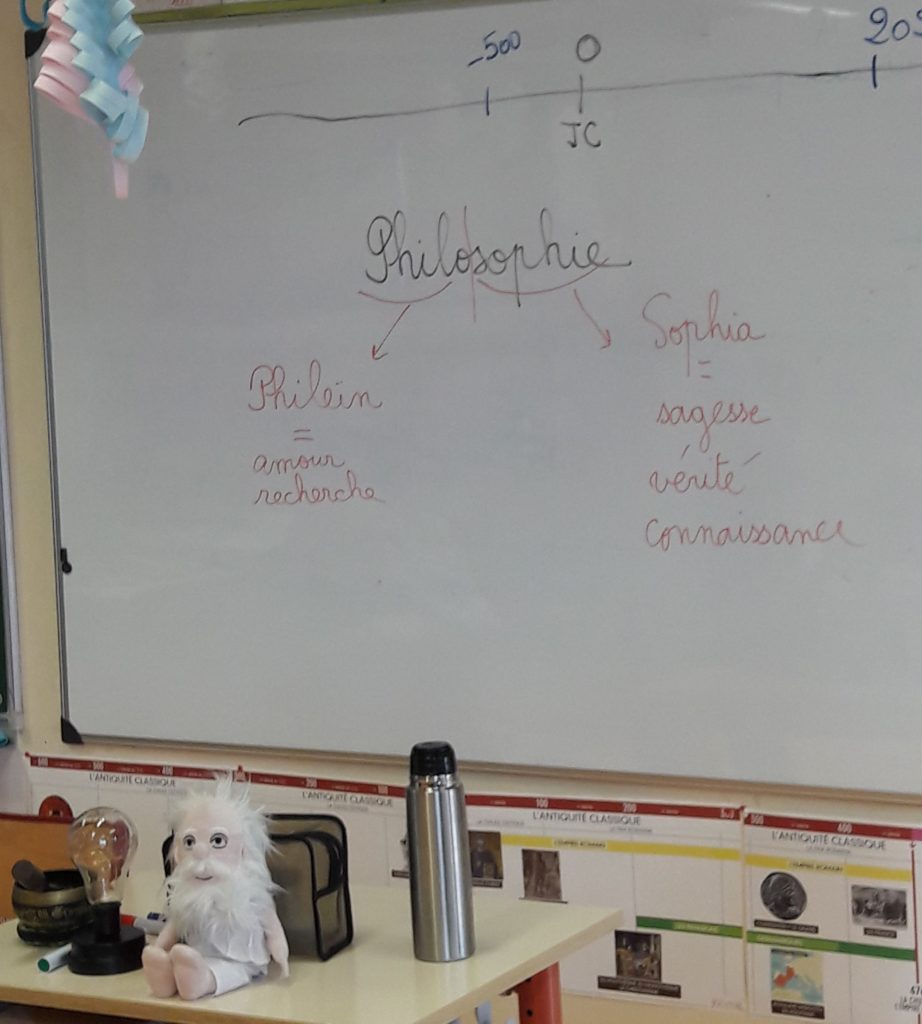 -500
0
JC
Philosophie
Sophia
=
sagesse
vérité
connaissance
Philein
=
amour
recherche
L'ANTIQUITÉ CLASSIQUE
L'ANTIQUITÉ CLASSIQUE
100
200
L'ANTIQUITÉ CLASSIQUE
L'EMPIRE ROMAIN
400
L'ANTIQUITÉ CLASSIQUE
L'EMPIRE ROMAIN